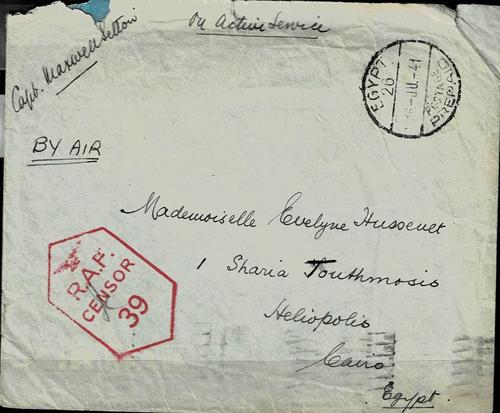 On Active Service
Capt. Maxwell Setton
EGYPT
26
JU -41
POSTAGE
PREPAID
BY AIR
Mademoiselle Evelyne Hussenet
1 Sharia Touthmosis
Heliopolis
Cairo
Egypt.
R.A.F.
CENSOR
39